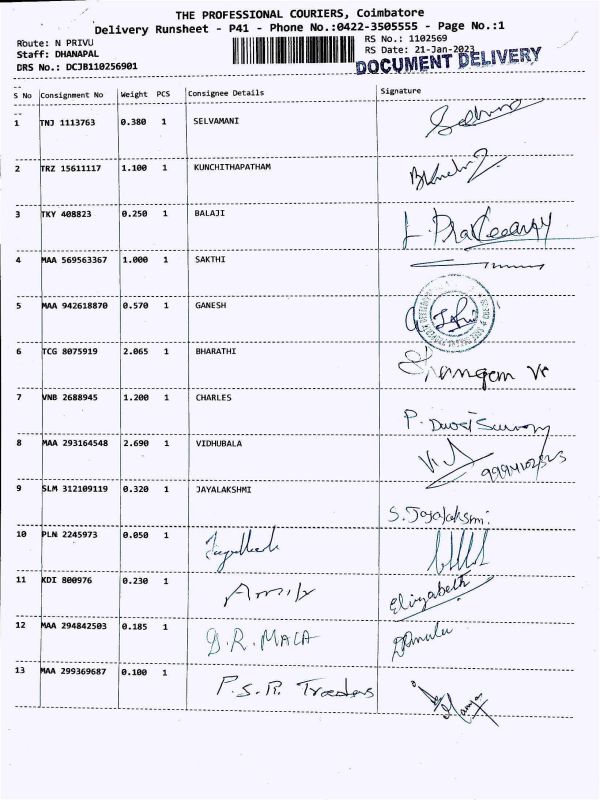 THE PROFESSIONAL COURIERS, Coimbatore
Delivery Runsheet - P41 - Phone No.:0422-3505555 - Page No.:1
Route: N PRIVU
RS No.: 1102569
Staff: DHANAPAL
RS Date: 21-Jan-2023
DRS No.: DCJB110256901
DOCUMENT DELIVERY
S No Consignment No Weight PCS Consignee Details Signature
1 TNJ 1113763 0.380 1 SELVAMANI
2 TRZ 15611117 1.100 1 KUNCHITHAPATHAM
3 TKY 408823 0.250 1 BALAJI
4 MAA 569563367 1.000 1 SAKTHI
5 MAA 942618870 0.570 1 GANESH
6 TCG 8075919 2.065 1 BHARATHI
7 VNB 2688945 1.200 1 CHARLES
8 MAA 293164548 2.690 1 VIDHUBALA
9 SLM 312109119 0.320 1 JAYALAKSHMI
S. Jayalaksmi
10 PLN 2245973 0.050 1
11 KDI 800976 0.230 1 Elizabeth
12 MAA 294842503 0.185 1 D.R. MALA
13 MAA 299369687 0.100 1 P.S.R. Traeders